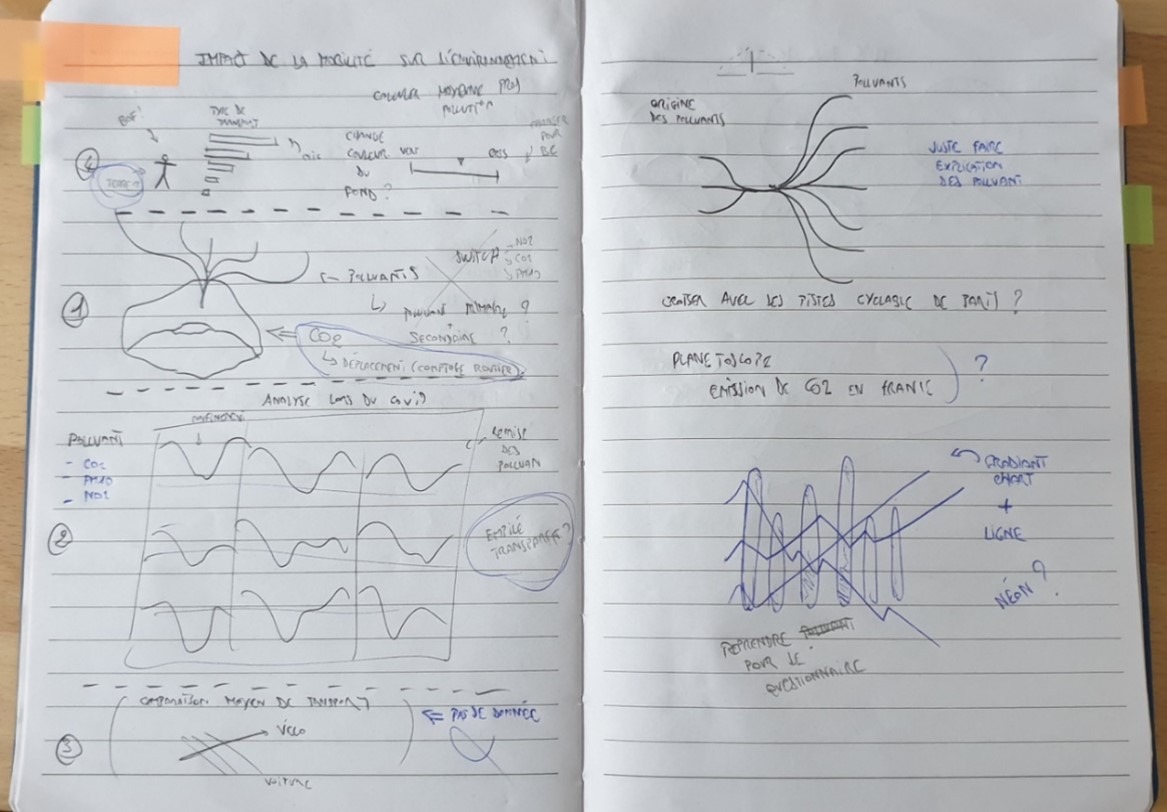 IMPACT DE LA MOBILITÉ SUR L'ENVIRONNEMENT
CALCULER MOYENNE
POLLUTION
BOF!
TYPE DE
TRANSPORT
CHANGE
COULEUR
DU
FOND ?
VOIT
POUR
4
1
← POLLUANTS
↳ POLLUANT PRIMAIRE ?
SECONDAIRE ?
SWITCH
- NO2
CO2
PM10
CO2
↳ DÉPLACEMENT (COMPTAGE ROUTIER)
ANALYSE LORS DU COVID
CONFINEMENT
POLLUANT
- CO2
- PM10
- NO2
REMISE
DES
POLLUAN
2
EMPILÉ
TRANSPARENCE ?
COMPARAISON MOYEN DE TRANSPORT
← PAS DE DONNÉE
3
VÉLO
VOITURE
ORIGINE
DES POLLUANTS
POLLUANTS
JUSTE FAIRE
EXPLICATION
DES POLLUANT
CROISER AVEC LES PISTES CYCLABLE DE PARIS ?
PLANETOSCOPE
EMISSION DE CO2 EN FRANCE
?
GRADIANT
CHART
+
LIGNE
NÉON ?
REPRENDRE
POUR LE
QUESTIONNAIRE